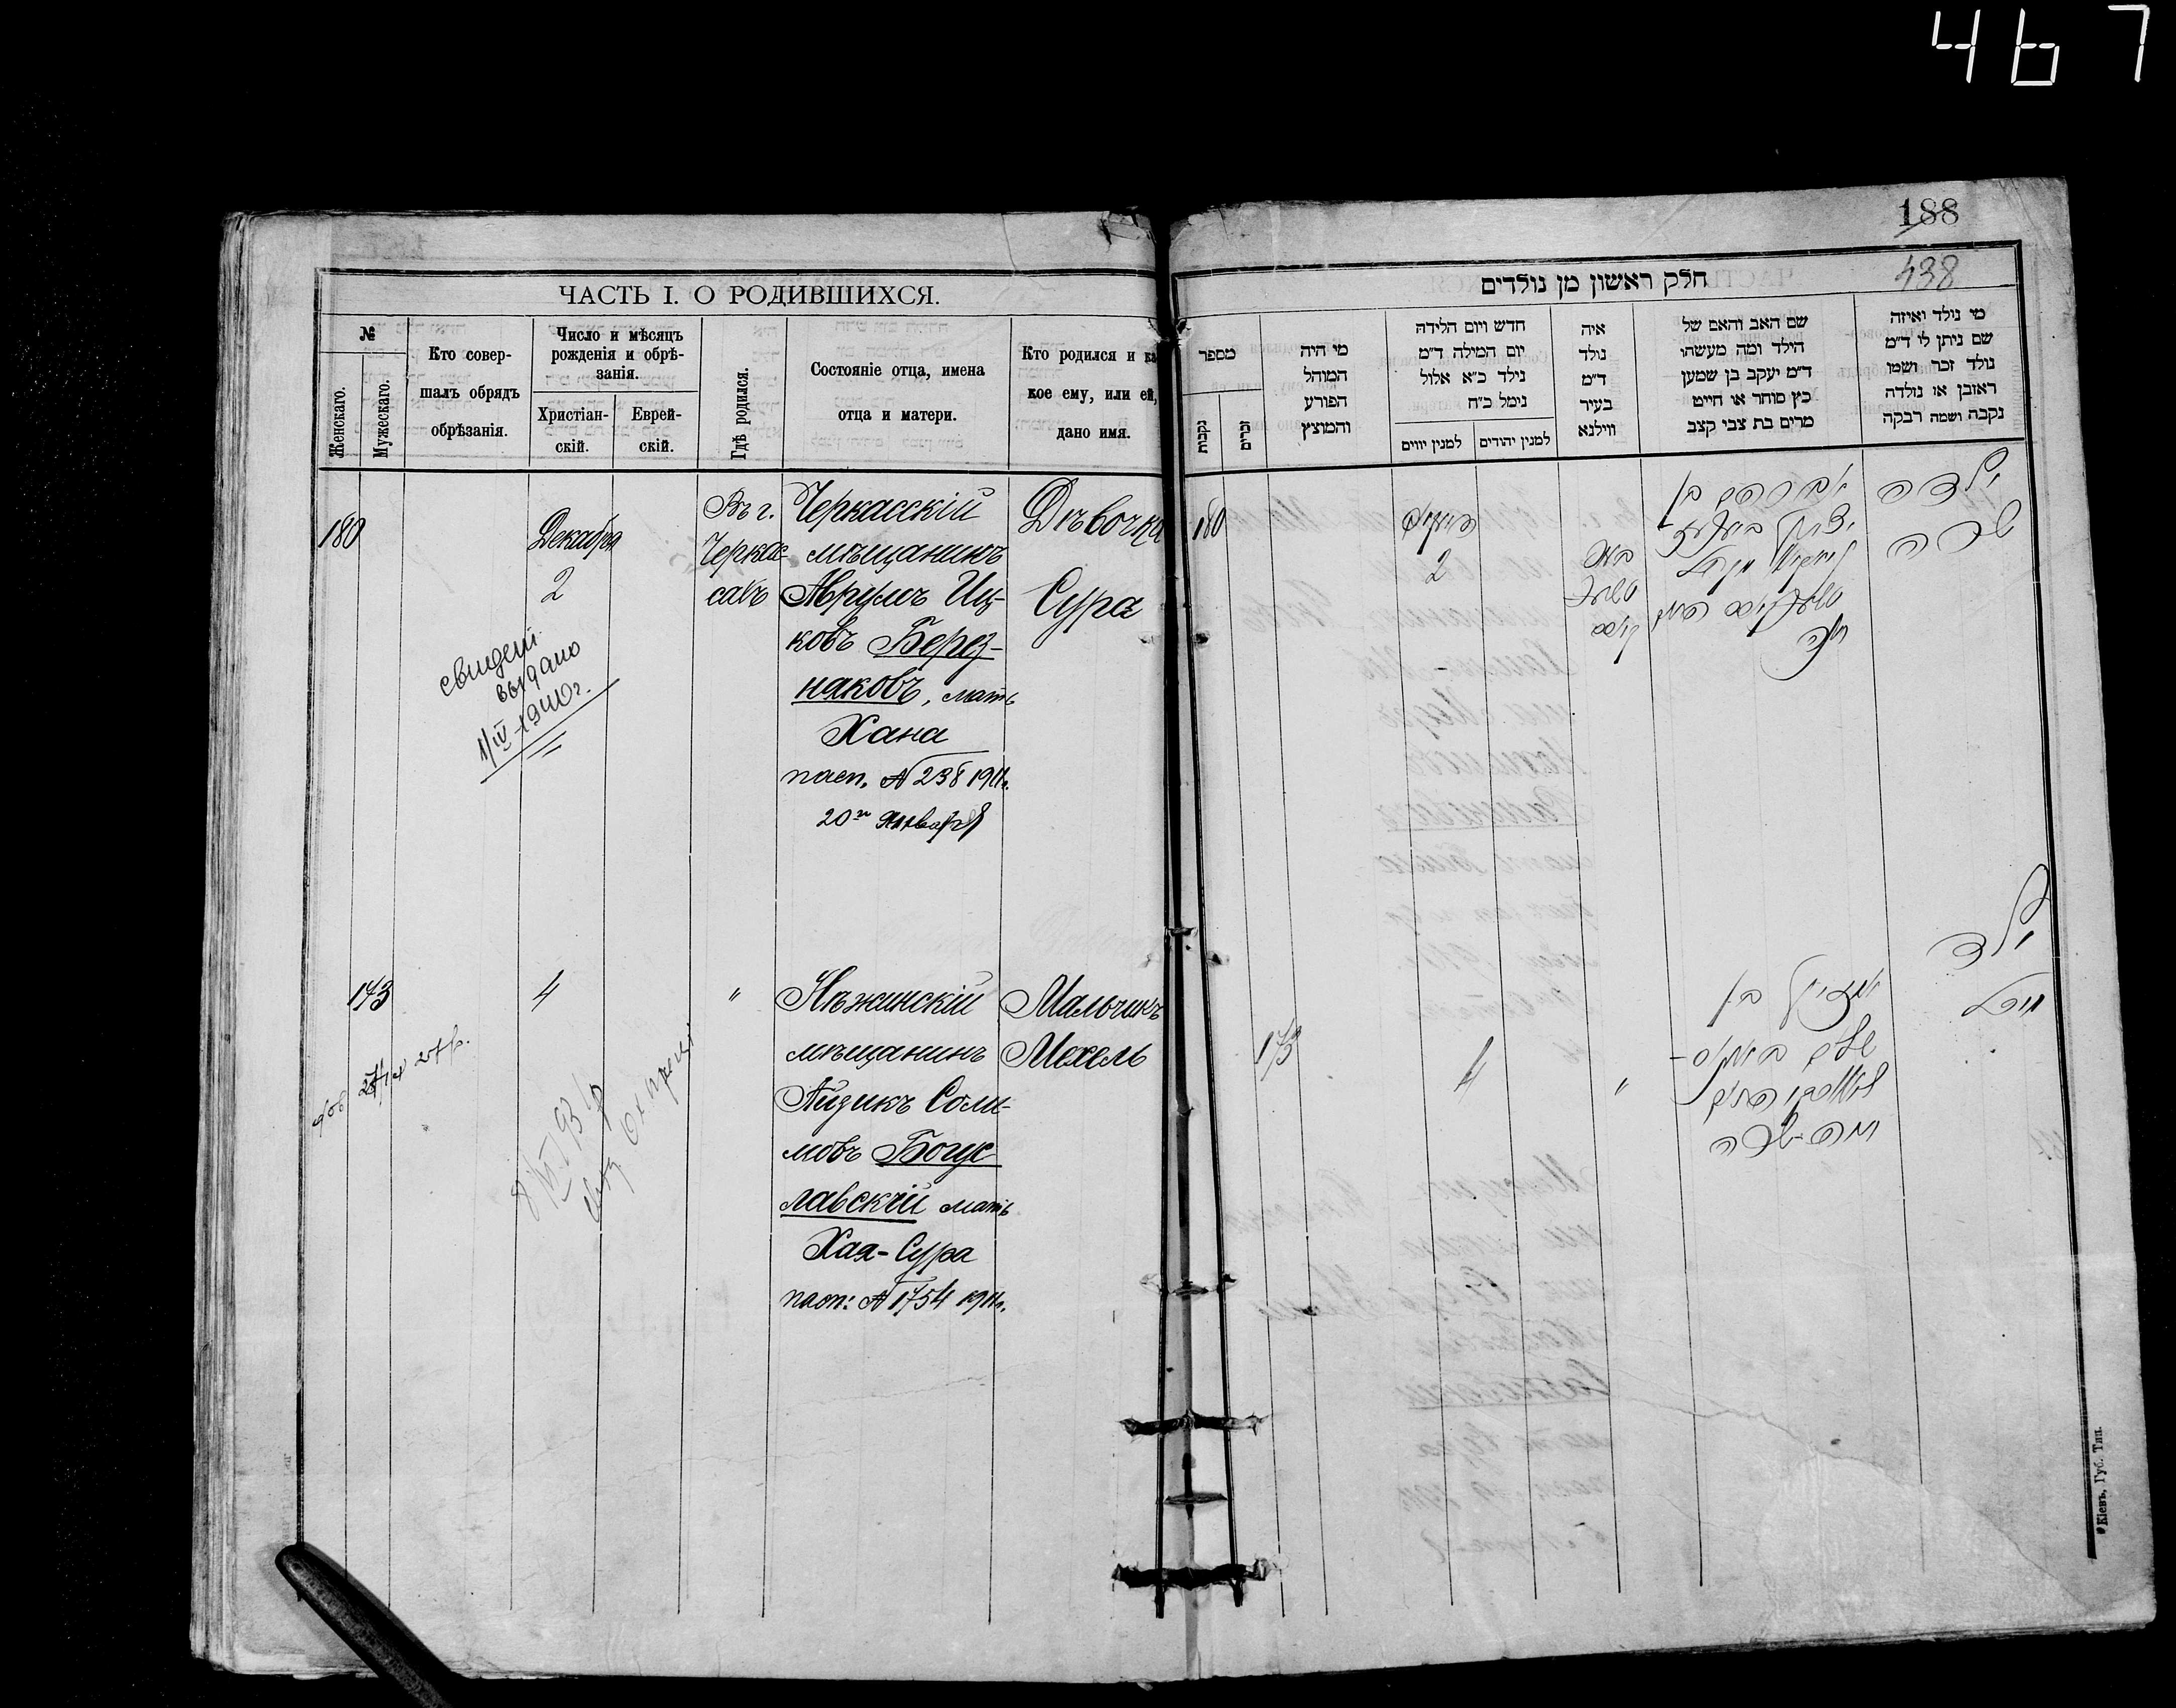 467
ЧАСТЬ I. О РОДИВШИХСЯ.
№
Женскаго.
Мужескаго.
Кто совер-
шалъ обрядъ
обрѣзанія.
Число и мѣсяцъ
рожденія и обрѣ-
занія.
Христіан-
скій.
Еврей-
скій.
Гдѣ родился.
Состояніе отца, имена
отца и матери.
Кто родился и ка
кое ему, или ей,
дано имя.
180
Декабря
2
Въ г.
Черкас-
сахъ
Черкасскій
мѣщанинъ
Аврумъ Иц-
ковъ Берез-
няковъ, мать
Хана
пасп. № 238 1911г.
20го Января
Дѣвочка
Сура
свидет.
выдано
1/IV-1940г.
173
4
"
Нѣжинскій
мѣщанинъ
Айзикъ Солы-
мовъ Богус-
лавскій мать
Хая-Сура
пасп: № 1754 1911г.
Мальчикъ
Мехель
188
438
חלק ראשון מן נולדים
מספר
נקבות
זכרים
מי היה
המוהל
הפורע
והמוצץ
חדש ויום הלידה
יום המילה ד״מ
נילד כ״א אלול
נימל כ״ח
למנין יווים
למנין יהודים
איה
נולד
ד״מ
בעיר
ווילנא
שם האב והאם של
הילד ומה מעשהו
ד״מ יעקב בן שמען
כץ סוחר או חייט
מרים בת צבי קצב
מי נולד ואיזה
שם ניתן לו ד״מ
נולד זכר ושמו
ראובן או נולדה
נקבה ושמה רבקה
180
2
אברהם בן
חנה
ילדה
שרה
173
4
"
אייזיק בן
חיה-שרה
ילד
מיכל
Кіевъ, Губ. Тип.